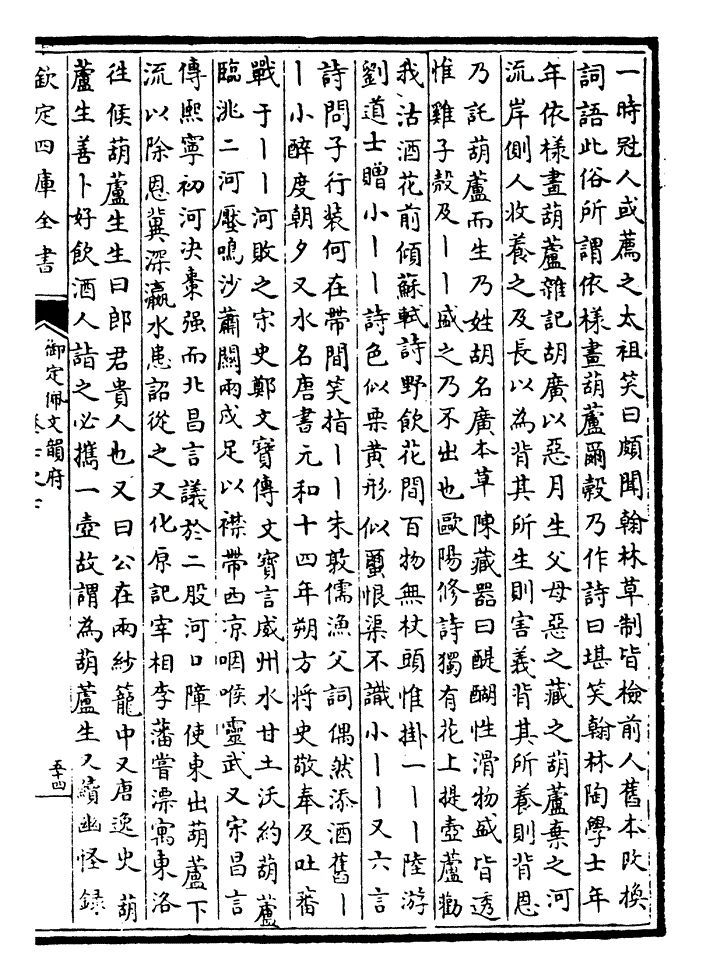 一時冠人或薦之太祖笑曰頗聞翰林草制皆檢前人舊本改換
詞語此俗所謂依様畫葫蘆爾糓乃作詩曰堪笑翰林陶學士年
年依様畫葫蘆雜記胡廣以惡月生父母惡之藏之葫蘆棄之河
流岸側人收養之及長以為背其所生則害義背其所養則背恩
乃託葫蘆而生乃姓胡名廣本草陳藏器曰醍醐性滑物盛皆透
惟雞子殼及丨丨盛之乃不出也歐陽修詩獨有花上提壺蘆勸
我沽酒花前傾蘇軾詩野飲花間百物無杖頭惟掛一丨丨陸游
劉道士贈小丨丨詩色似栗黄形似蠒恨渠不識小丨丨又六言
詩問子行装何在帶間笑指丨丨朱敦儒漁父詞偶然添酒舊丨
丨小醉度朝夕又水名唐書元和十四年朔方将史敬奉及吐蕃
戰于丨丨河敗之宋史鄭文寶傳文寶言威州水甘土沃約葫蘆
臨洮二河壓鳴沙蕭關兩戍足以襟帶西凉咽喉靈武又宋昌言
傳熙寧初河决棗强而北昌言議於二股河口障使東出葫蘆下
流以除恩冀深瀛水患詔從之又化原記宰相李藩嘗漂寓東洛
往候葫蘆生生曰郎君貴人也又曰公在兩紗籠中又唐逸史葫
蘆生善卜好飲酒人詣之必攜一壺故謂為葫蘆生又續幽怪録
欽定四庫全書
御定佩文韻府
五十四